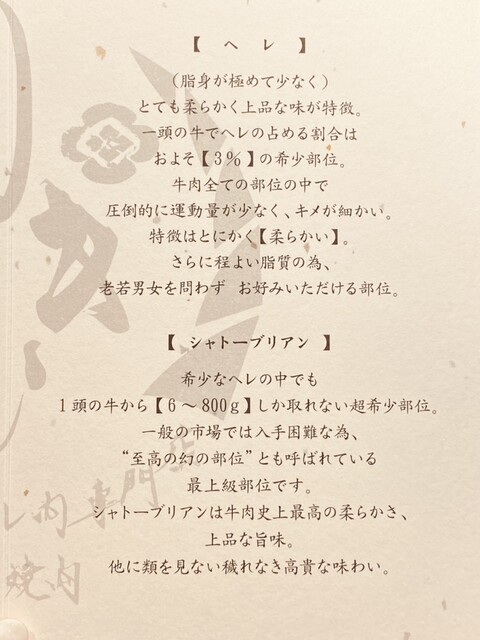 【 ヘレ 】
（脂身が極めて少なく）
とても柔らかく上品な味が特徴。
一頭の牛でヘレの占める割合は
およそ【3％】の希少部位。
牛肉全ての部位の中で
圧倒的に運動量が少なく、キメが細かい。
特徴はとにかく【柔らかい】。
さらに程よい脂質の為、
老若男女を問わず お好みいただける部位。
【 シャトーブリアン 】
希少なヘレの中でも
1頭の牛から【6～800g】しか取れない超希少部位。
一般の市場では入手困難な為、
“至高の幻の部位”とも呼ばれている
最上級部位です。
シャトーブリアンは牛肉史上最高の柔らかさ、
上品な旨味。
他に類を見ない穢れなき高貴な味わい。
レ肉専門店
焼肉